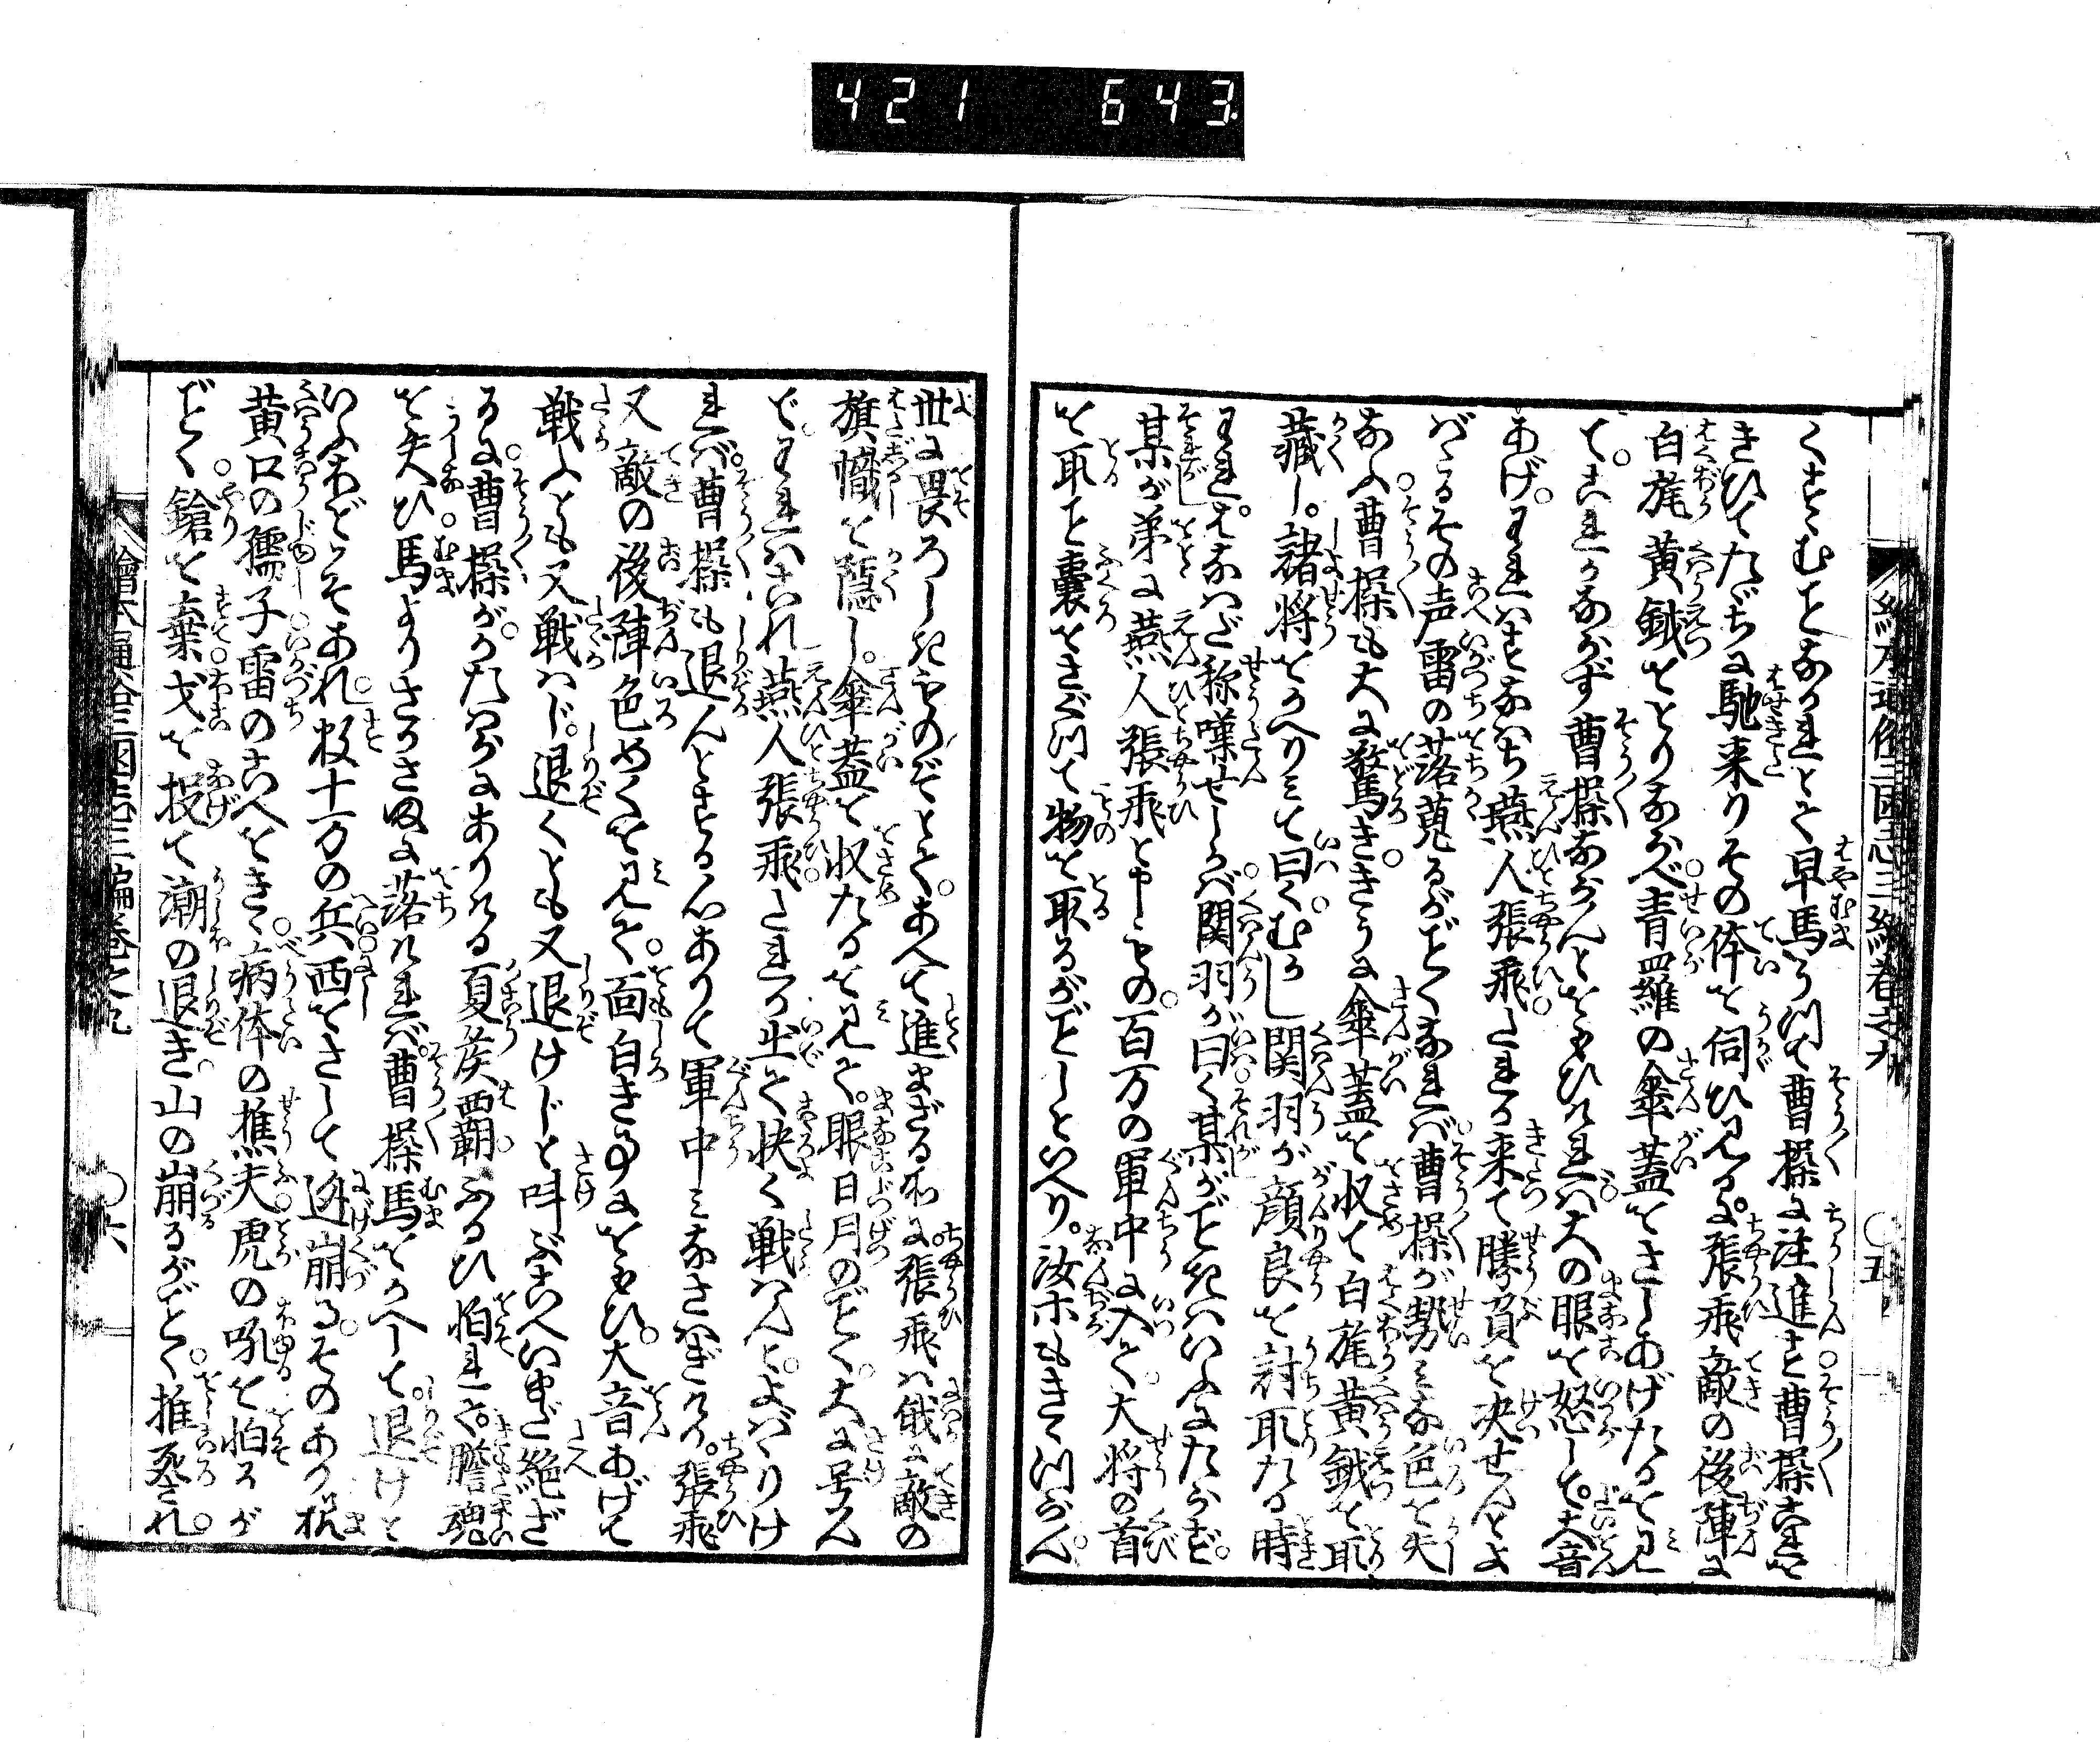 421 643
繪本通俗三国志三編巻之九 〇五
くすゝむことなかれとて早馬をうつて曹操に注進す曹操これを
きひてたゞちに馳来りその体を伺ひ見るに張飛敵の後陣に
白旄黄鉞をとりならべ青羅の傘蓋をさしあげたるを見
て。これかならず曹操ならんとをもひければ大の眼を怒して。大音
あげ。われはすなはち燕人張飛これに来て勝負を决せんとよ
ばゝるその声雷の落蒐るがごとくなれば曹操が勢みな色を失
なふ曹操も大に驚き。きうに傘蓋を収て白旄黄鉞を取
藏し。諸将をかへりみて曰く。むかし関羽が顔良を討取たる時
われ。はなはだ称嘆せしかば関羽が曰く某がごときはいふにたらず。
某が弟に燕人張飛と申もの。百万の軍中に入て。大将の首
を取こと嚢をさぐつて物を取るがごとしといへり。汝ホもきつらん。
世に畏ろしきものぞとて。あへて進まざる所に。張飛は俄に敵の
旗幟を隠し。傘蓋を収たるを見て。眼日月のごとく。大に号ん
で。われはこれ燕人張飛これに出て快く戦はんと。よばゝりけ
れば。曹操も退んとする心ありて軍中みなさはぎける。張飛
又敵の後陣色めくを見て。面白き事にをもひ。大音あげて
戦ふとも又戦はじ。退くとも又退けじと呌ぶこへいまだ絶ざ
るに。曹操が。かたはらにありける夏侯覇ふるひ怕れて。膽魂
を失ひ馬よりさかさまに落ければ。曹操馬をかへして。退けと
いふほどこそあれ。数十万の兵西をさして迯崩る。そのあり様
黄口の孺子雷のこへをきゝ病体の樵夫虎の吼を怕るが
ごとく鎗を棄戈を投て潮の退き。山の崩るがごとく。推死され。
繪本通俗三国志三編巻之九 〇六